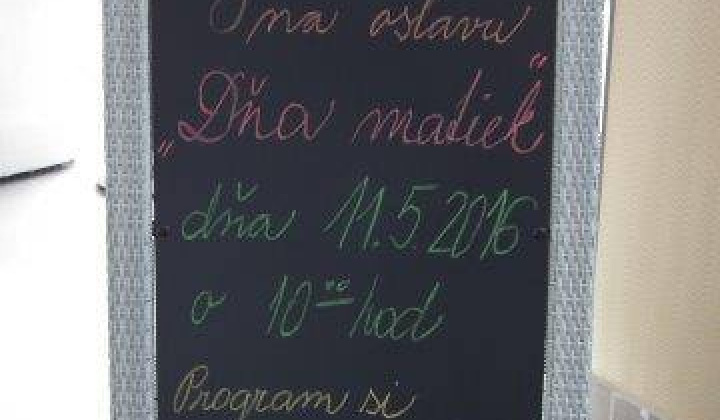 na oslavu
„Dňa matiek“
dňa 11.5 2016
o 10⁰⁰ hod
Program si